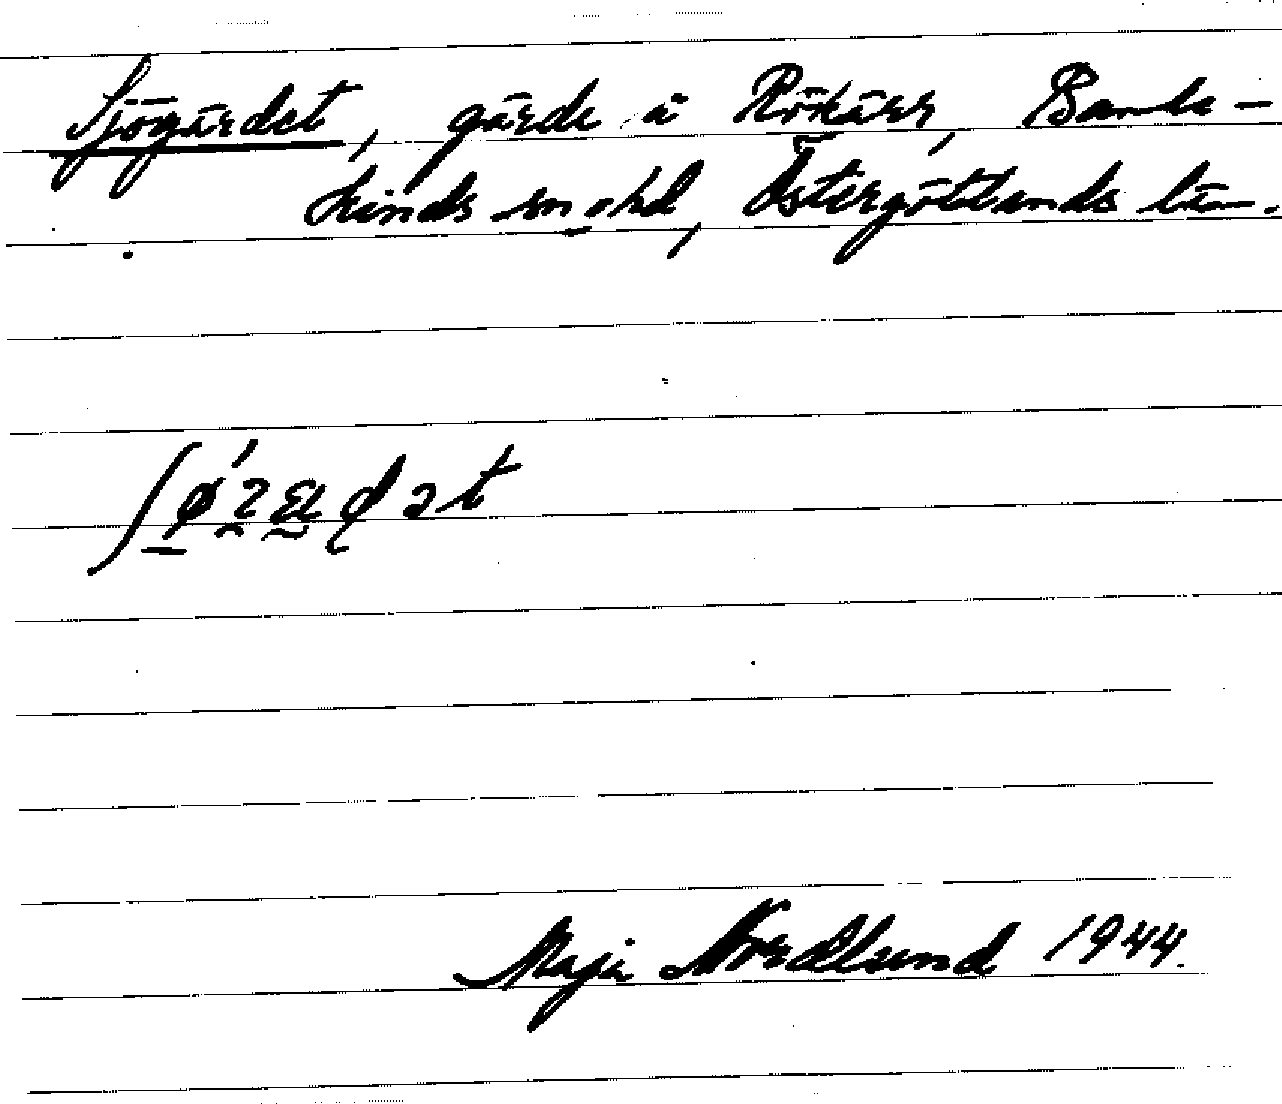 Sjögärdet, gärde å Rökärr, Banke-
kinds sn o hd, Östergötlands län.
Maja Nordlund 1944.